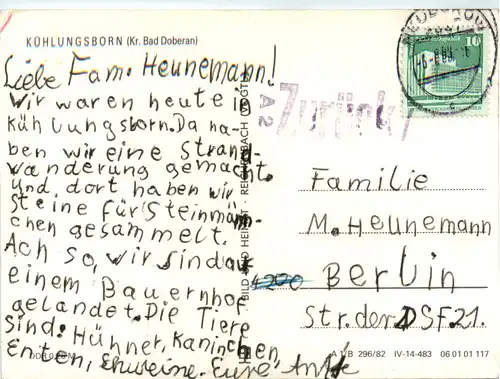 KÜHLUNGSBORN (Kr. Bad Doberan)
Liebe Fam. Heunemann!
Wir waren heute in
Kühlungsborn. Da ha-
ben wir eine Strand-
wanderung gemacht.
Und dort haben wir
Steine für Steinmänn-
chen gesammelt.
Ach so, wir sind auf
einem Bauernhof
gelandet. Die Tiere
sind: Hühner, Kaninchen,
Enten, Schweine. Eure Antje
BILD UND HEIMAT REICHENBACH
A 2
Zurück
10
Familie
M. Heunemann
Berlin
Str. der DSF 21.
A 1/B 296/82 IV-14-483 06 01 01 117